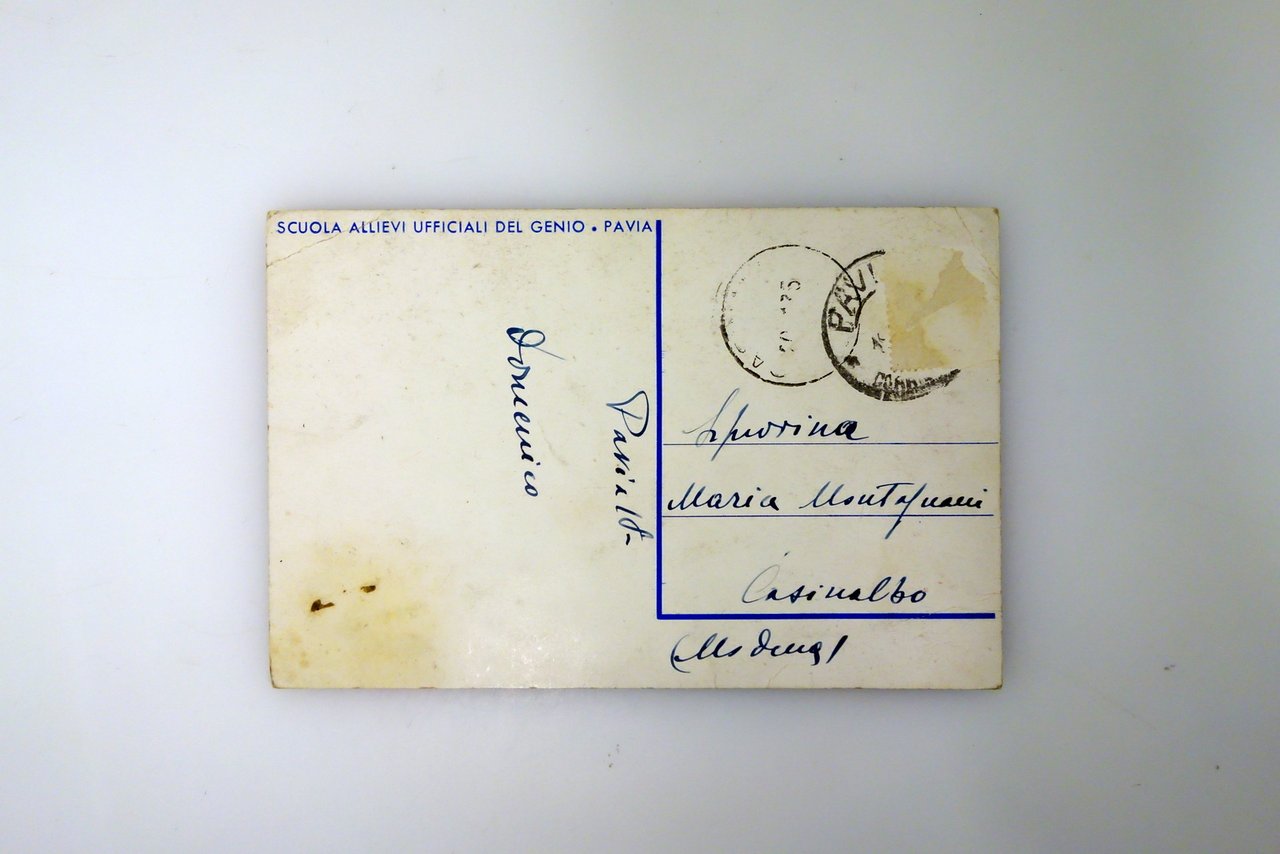 SCUOLA ALLIEVI UFFICIALI DEL GENIO • PAVIA
Pavia
Domenico
PAVI
Signorina
Maria Montagnani
Casinalbo
(Modena)